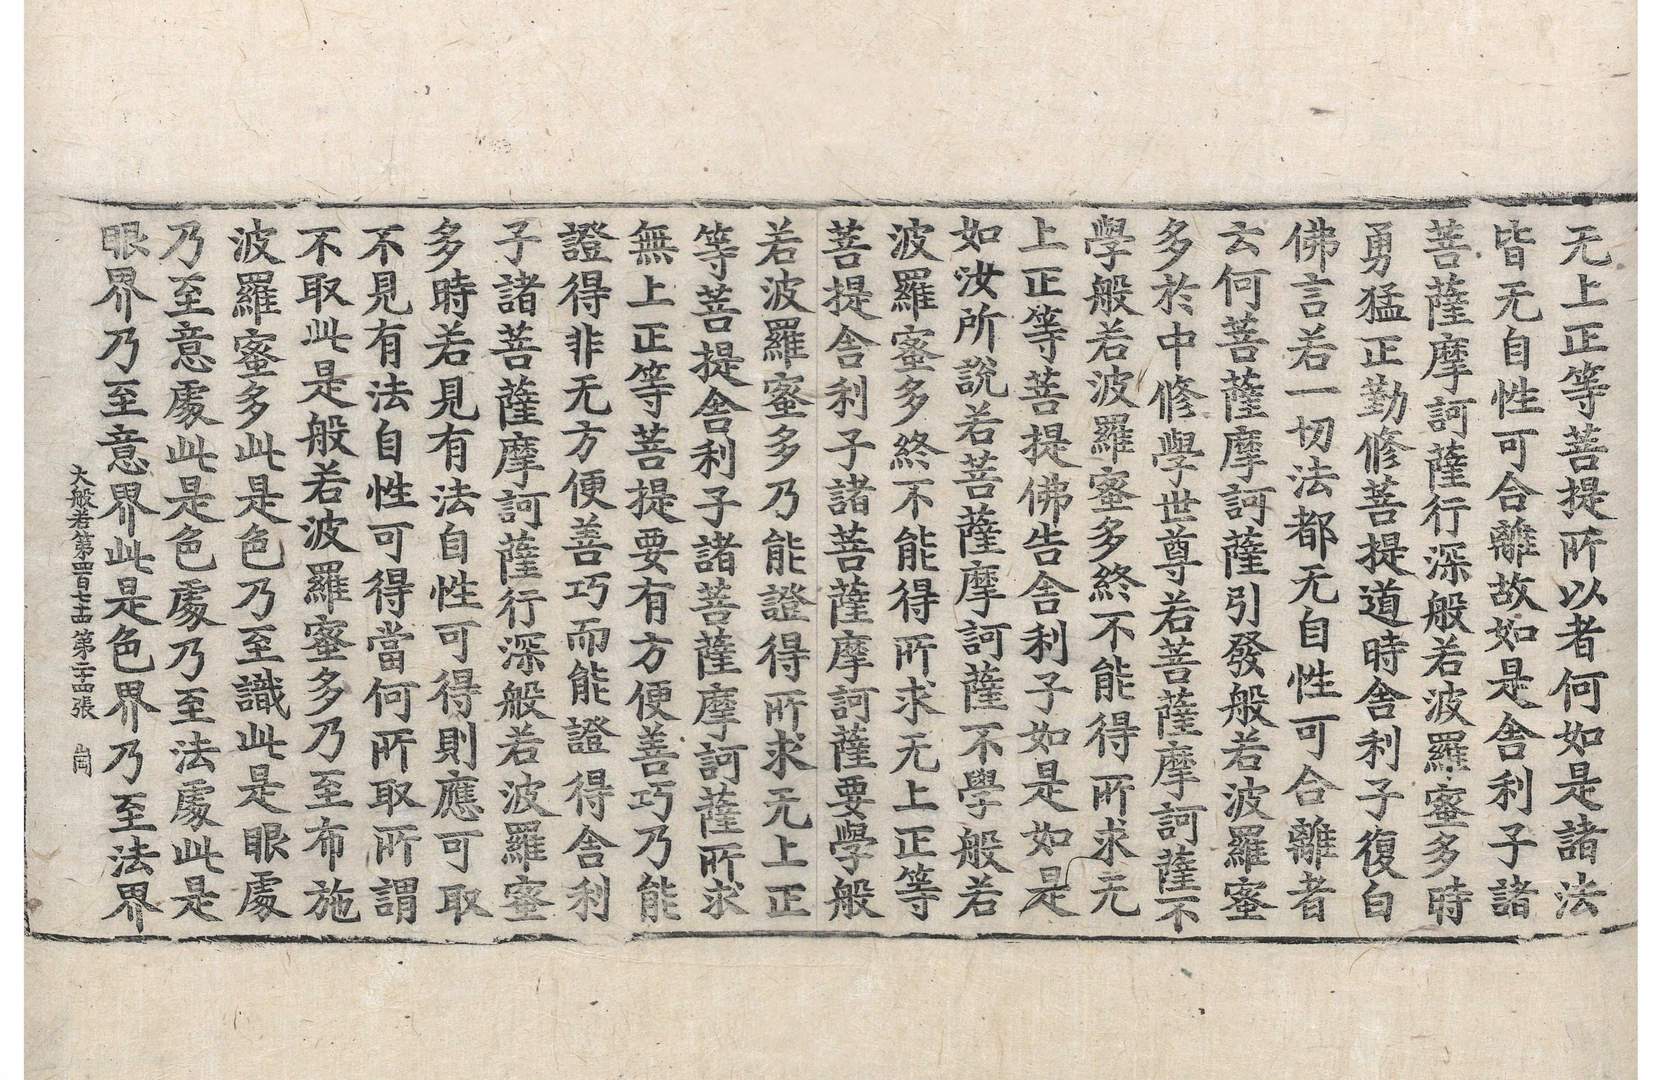 无上正等菩提所以者何如是諸法
皆无自性可合離故如是舍利子諸
菩薩摩訶薩行深般若波羅蜜多時
勇猛正勤修菩提道時舍利子復白
佛言若一切法都无自性可合離者
云何菩薩摩訶薩引發般若波羅蜜
多於中修學世尊若菩薩摩訶薩不
學般若波羅蜜多終不能得所求无
上正等菩提佛告舍利子如是如是
如汝所說若菩薩摩訶薩不學般若
波羅蜜多終不能得所求无上正等
菩提舍利子諸菩薩摩訶薩要學般
若波羅蜜多乃能證得所求无上正
等菩提舍利子諸菩薩摩訶薩所求
無上正等菩提要有方便善巧乃能
證得非无方便善巧而能證得舍利
子諸菩薩摩訶薩行深般若波羅蜜
多時若見有法自性可得則應可取
不見有法自性可得當何所取所謂
不取此是般若波羅蜜多乃至布施
波羅蜜多此是色乃至識此是眼處
乃至意處此是色處乃至法處此是
眼界乃至意界此是色界乃至法界
大般若第四百七十五 第二十四張